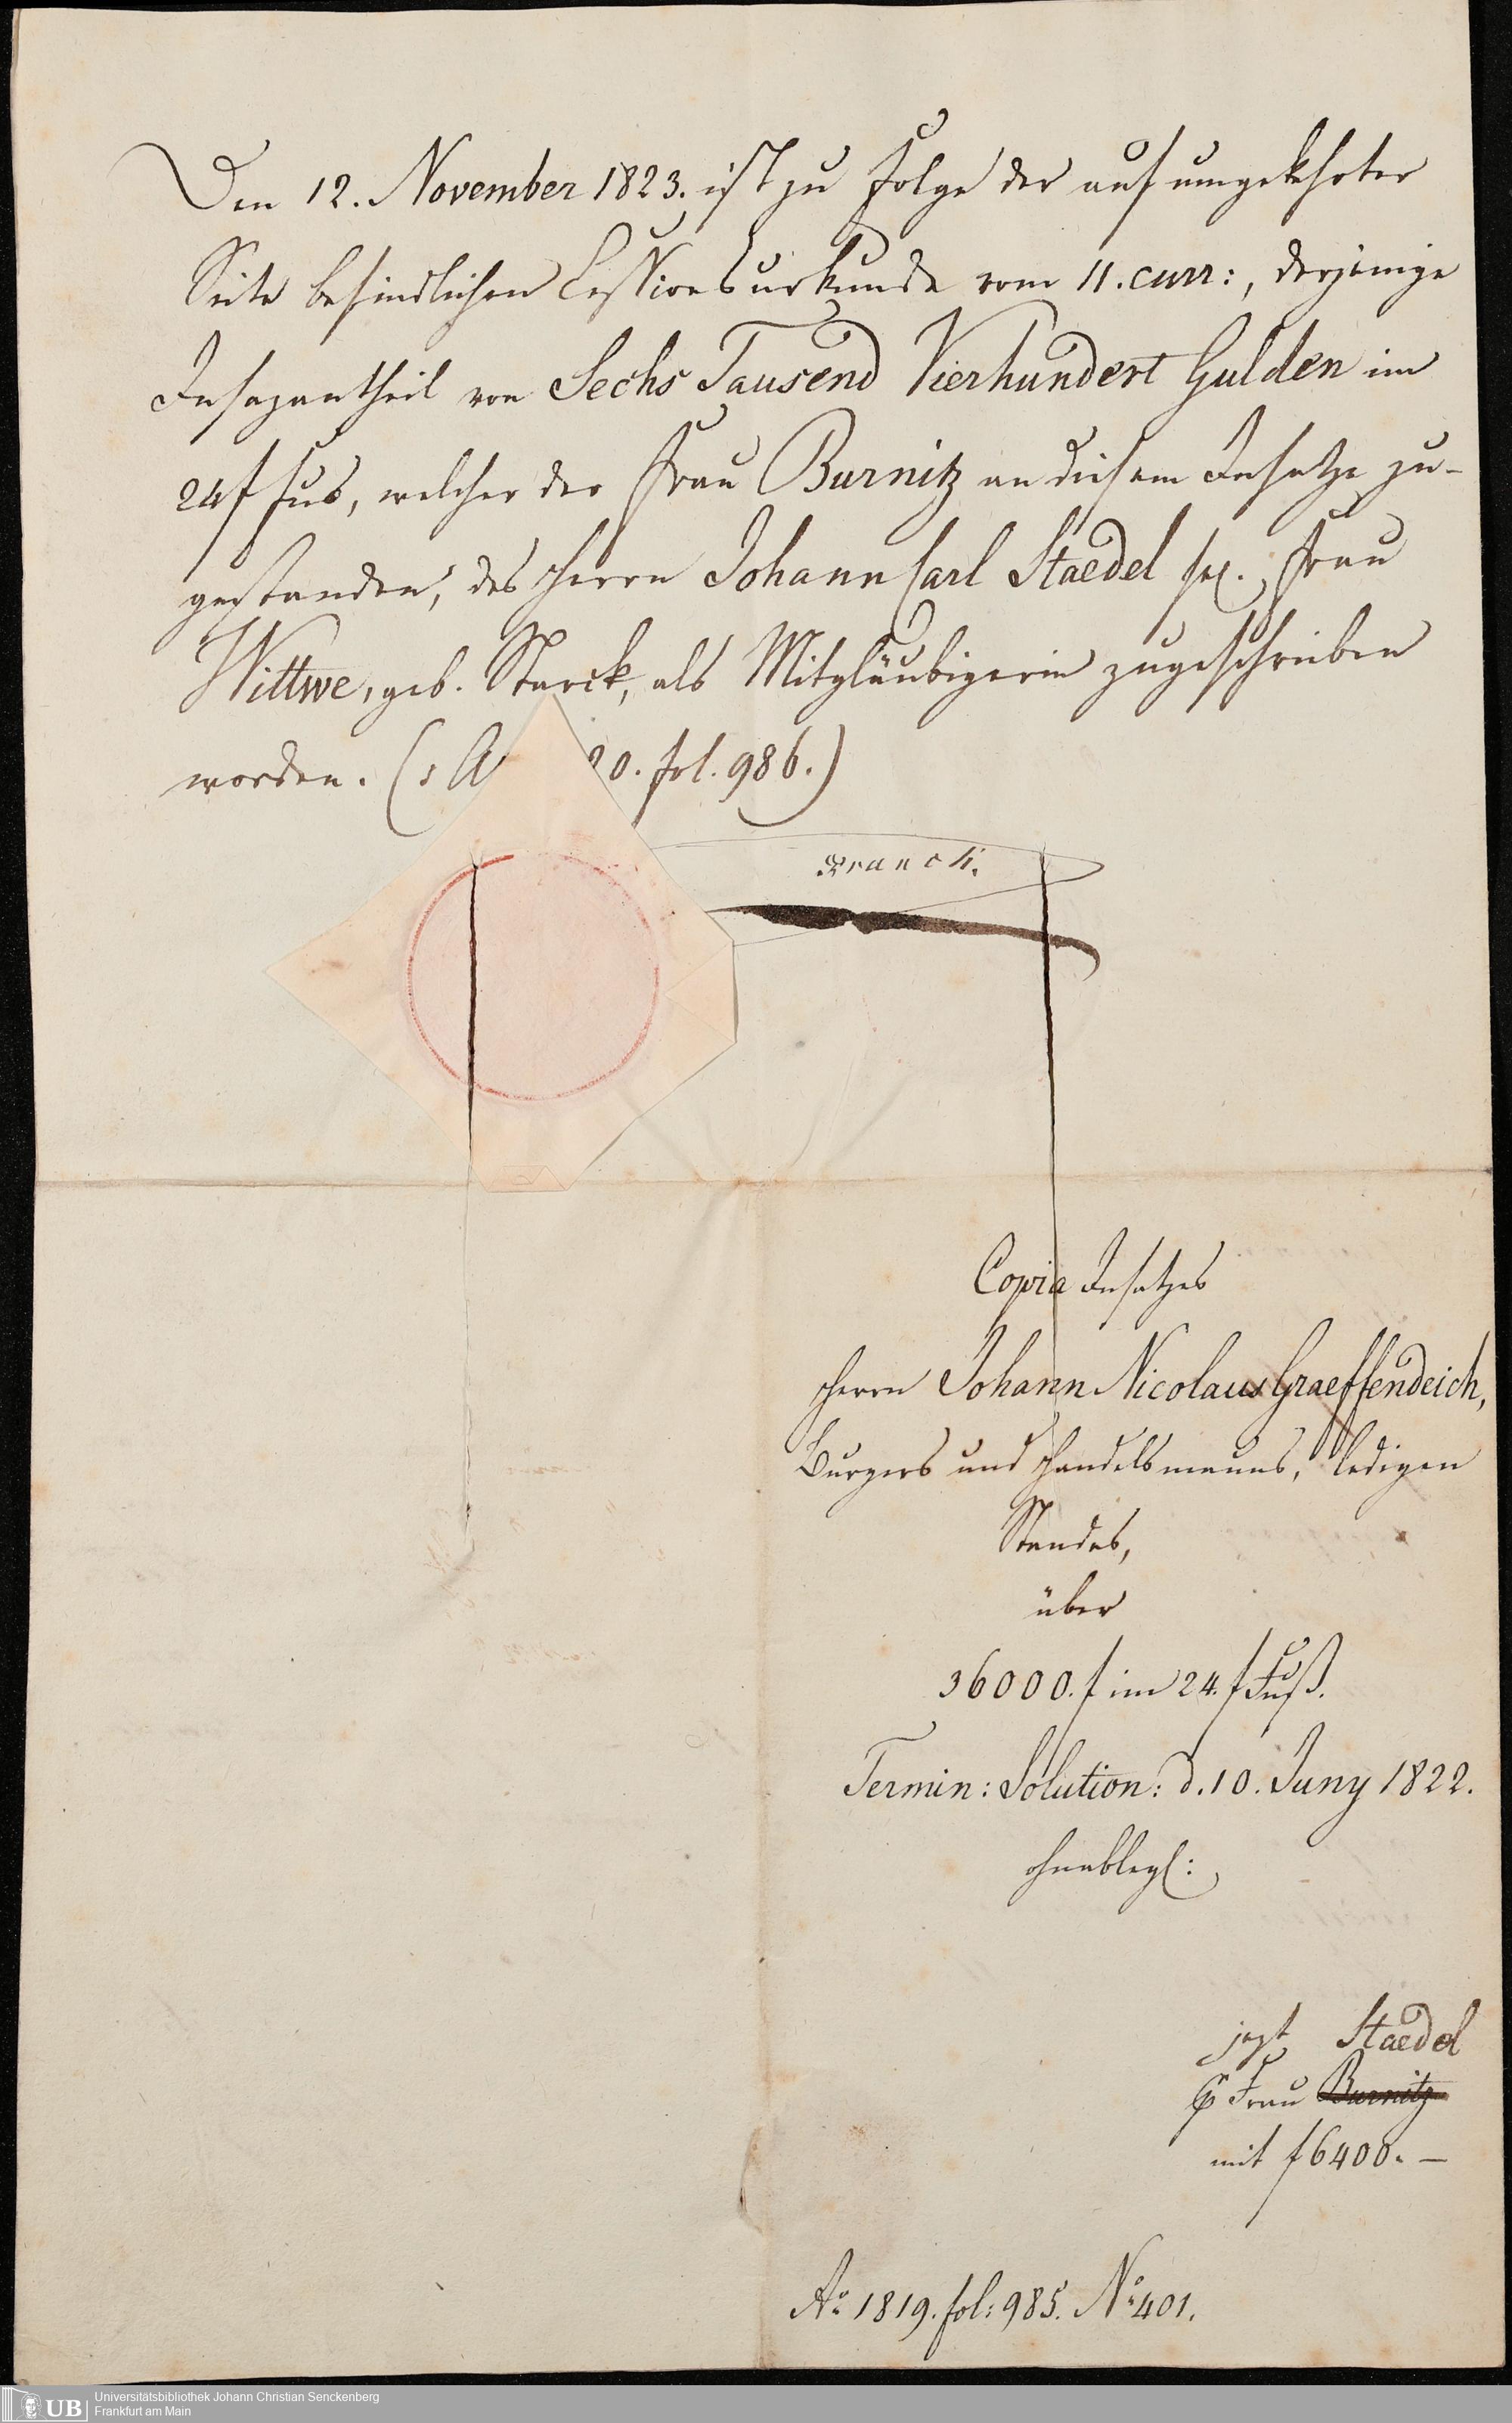 Den 12. November 1823. ist zu Folge der auf umgekehrter
Seite befindlichen Cessionsurkunde vom 11. curr:, derjenige
Insazantheil von Sechs Tausend Vierhundert Gulden im
24 f fus, welcher der Frau Burnitz an diesem Insatze zu-
gestanden, des Herrn Johann Carl Staedel sel. Frau
Wittwe, geb. Starck, als Mitgläubigerin zugeschrieben
worden. (: A 20. fol. 986.)
Franck.
Copia Insatzes
Herrn Johann Nicolaus Graeffendeich,
Burgers und Handelsmanns, ledigen
Standes,
über
36000. f im 24. f Fuß.
Termin: Solution: d. 10. Juny 1822.
ohnablegl:
jezt Staedel
Frau Burnitz
mit f 6400. —
Ao. 1819. fol: 985. No. 401.
UB Universitätsbibliothek Johann Christian Senckenberg
Frankfurt am Main